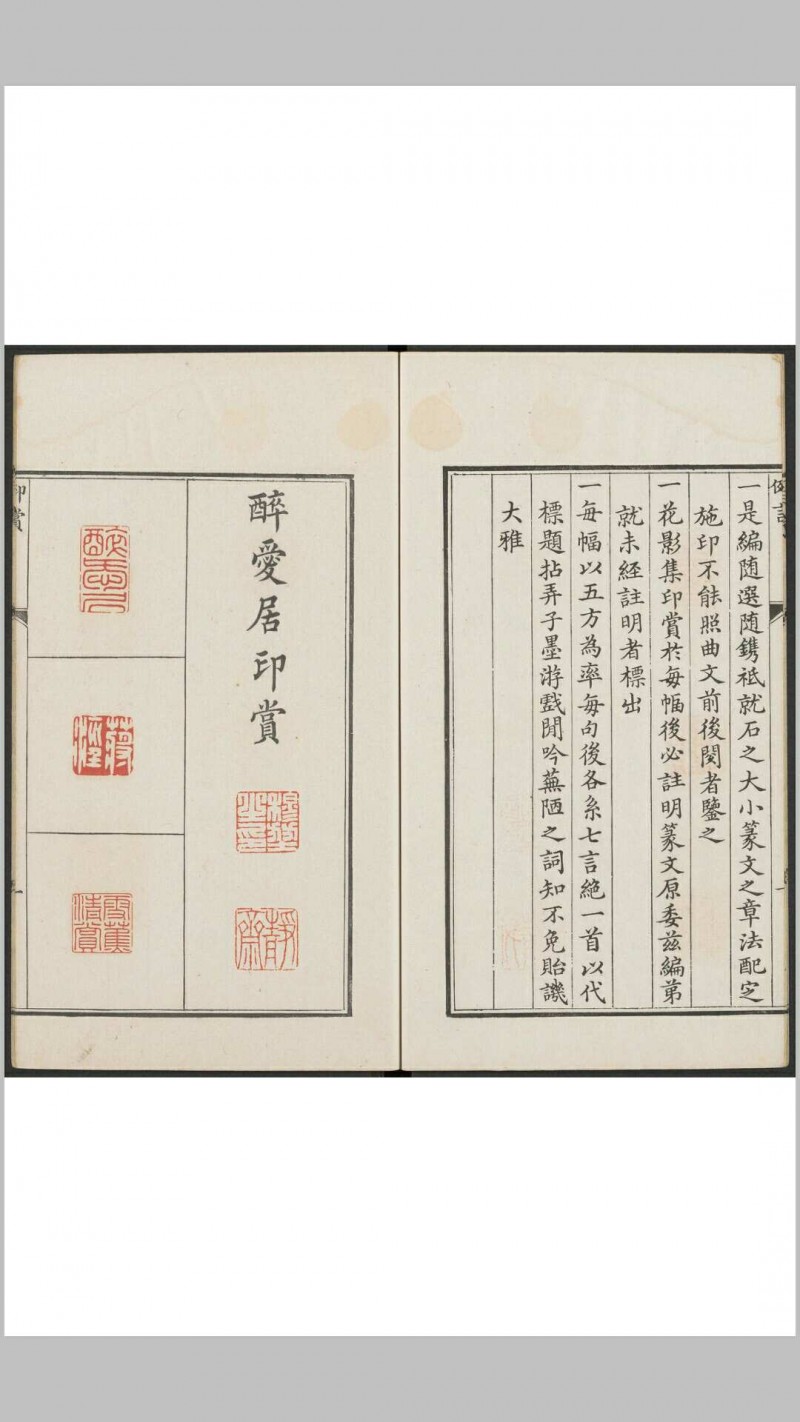 一是編随選随鐫祗就石之大小篆文之章法配定
施印不能照曲文前後閱者鑒之
一花影集印賞於每幅後必註明篆文原委茲編第
就未經註明者標出
一每幅以五方為率每句後各系七言絕一首以代
標題拈弄子墨游戲閒吟蕪陋之詞知不免貽譏
大雅
醉愛居印賞
靜齋
醉愛居
蔣煋
雪蕉清賞
印賞